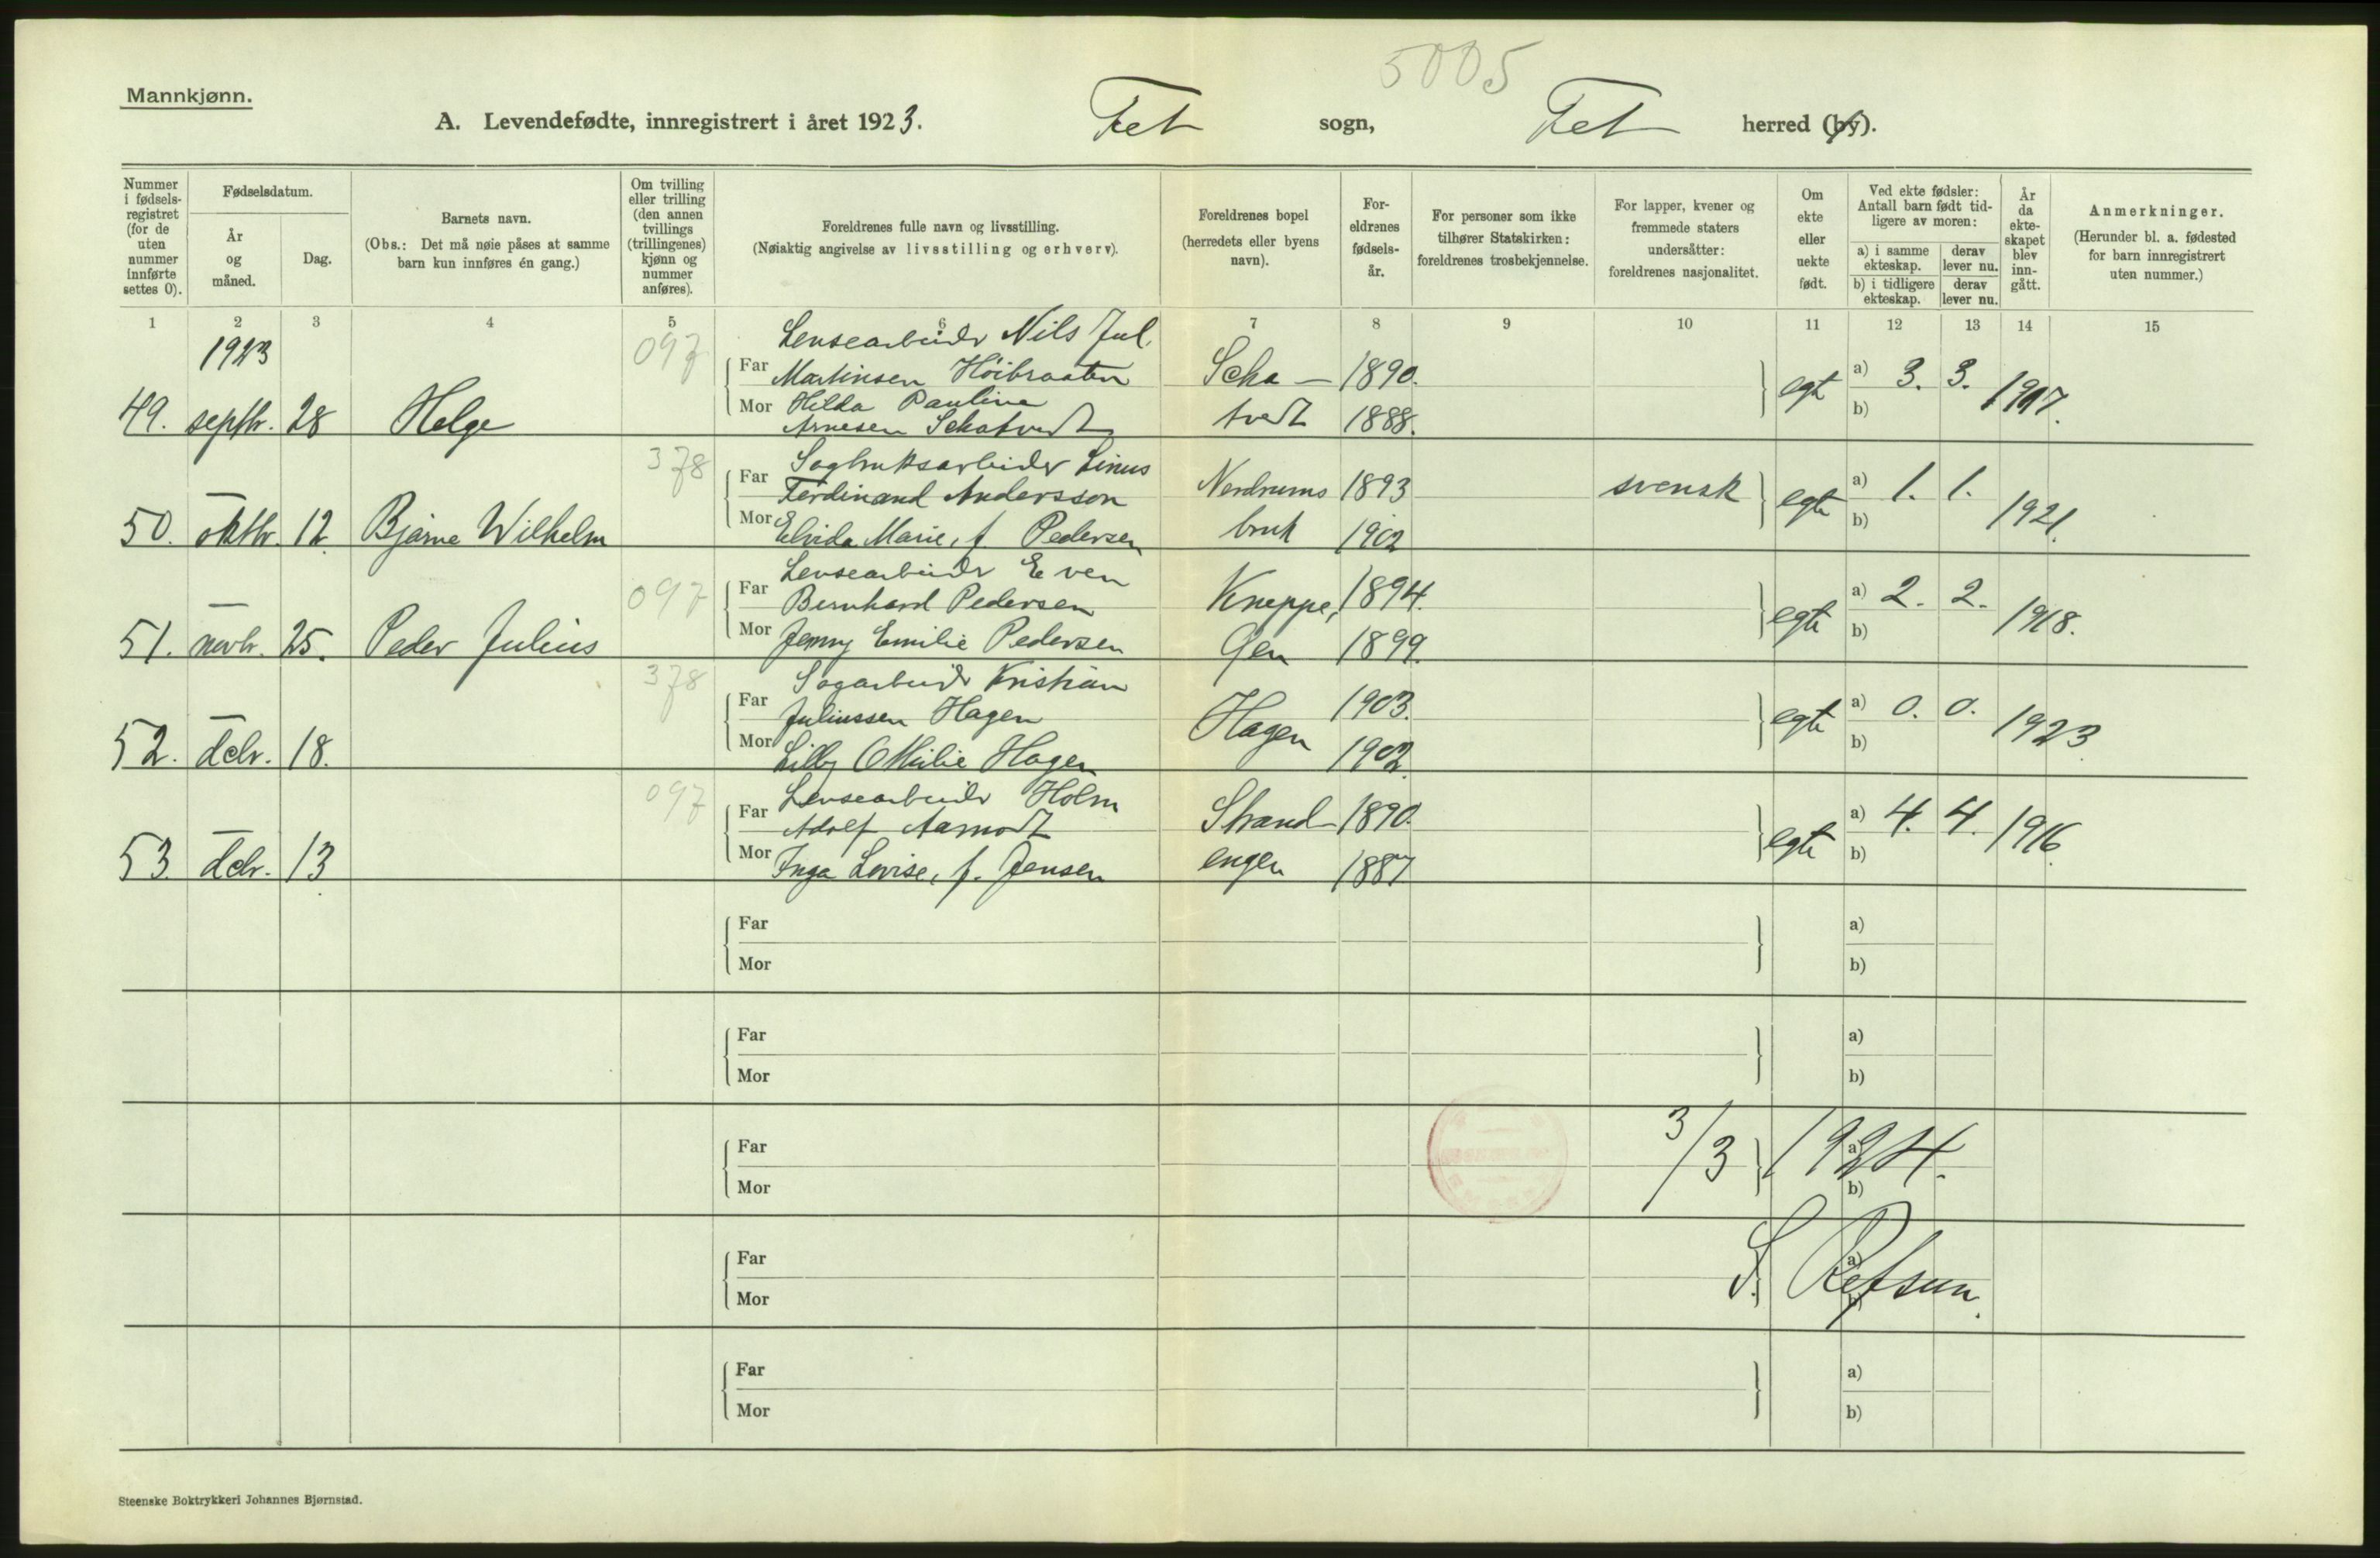 5005
Mannkjønn.
A. Levendefødte, innregistrert i året 1923. Fet sogn, Fet herred (by).
Nummer i fødselsregistret (for de uten nummer innførte settes 0).
Fødselsdatum.
År og måned.
Dag.
Barnets navn.
(Obs.: Det må nøie påses at samme barn kun innføres én gang.)
Om tvilling eller trilling (den annen tvillings (trillingenes) kjønn og nummer anføres).
Foreldrenes fulle navn og livsstilling.
(Nøiaktig angivelse av livsstilling og erhverv).
Foreldrenes bopel (herredets eller byens navn).
Foreldrenes fødselsår.
For personer som ikke tilhører Statskirken: foreldrenes trosbekjennelse.
For lapper, kvener og fremmede staters undersåtter: foreldrenes nasjonalitet.
Om ekte eller uekte født.
Ved ekte fødsler: Antall barn født tidligere av moren:
a) i samme ekteskap. derav lever nu.
b) i tidligere ekteskap. derav lever nu.
År da ekteskapet blev inngått.
Anmerkninger.
(Herunder bl. a. fødested for barn innregistrert uten nummer.)
1 2 3 4 5 6 7 8 9 10 11 12 13 14 15
1923 097 Lensearbeider Nils Jul.
Far Martinsen Höibraaten Scka— 1890. egt a) 3. 3. 1917.
49. septbr. 28 Helge Mor Hilda Pauline
Arnesen Sckatvedt tvedt 1888. b)
378 Sagbruksarbeider Linus
Far Ferdinand Andersson Nerdrums 1893 svensk egte a) 1. 1. 1921.
50. oktbr. 12. Bjarne Wilhelm Mor Elvida Marie, f. Pedersen bruk 1902 b)
097 Lensearbeider Even
Far Bernhard Pedersen Kneppe, 1894. egte a) 2. 2. 1918.
51. novbr. 25. Peder Julius Mor Jenny Emilie Pedersen Gen 1899. b)
378 Sagarbeider Kristian
Far Juliussen Hagen Hagen 1903. egte a) 0. 0. 1923
52. debr. 18. Mor Lilly Othilie Hagen 1902. b)
097 Lensearbeider Holm
Far Adolf Aamodt Strand- 1890. egte a) 4. 4. 1916.
53. debr. 13. Mor Inga Lovise, f. Jensen engen 1887 b)
Far a)
Mor b)
Far a)
Mor b)
Far a)
Mor b)
3/3 1924.
Far a)
Mor b)
S. Refsum.
Far a)
Mor b)
Steenske Boktrykkeri Johannes Bjørnstad.